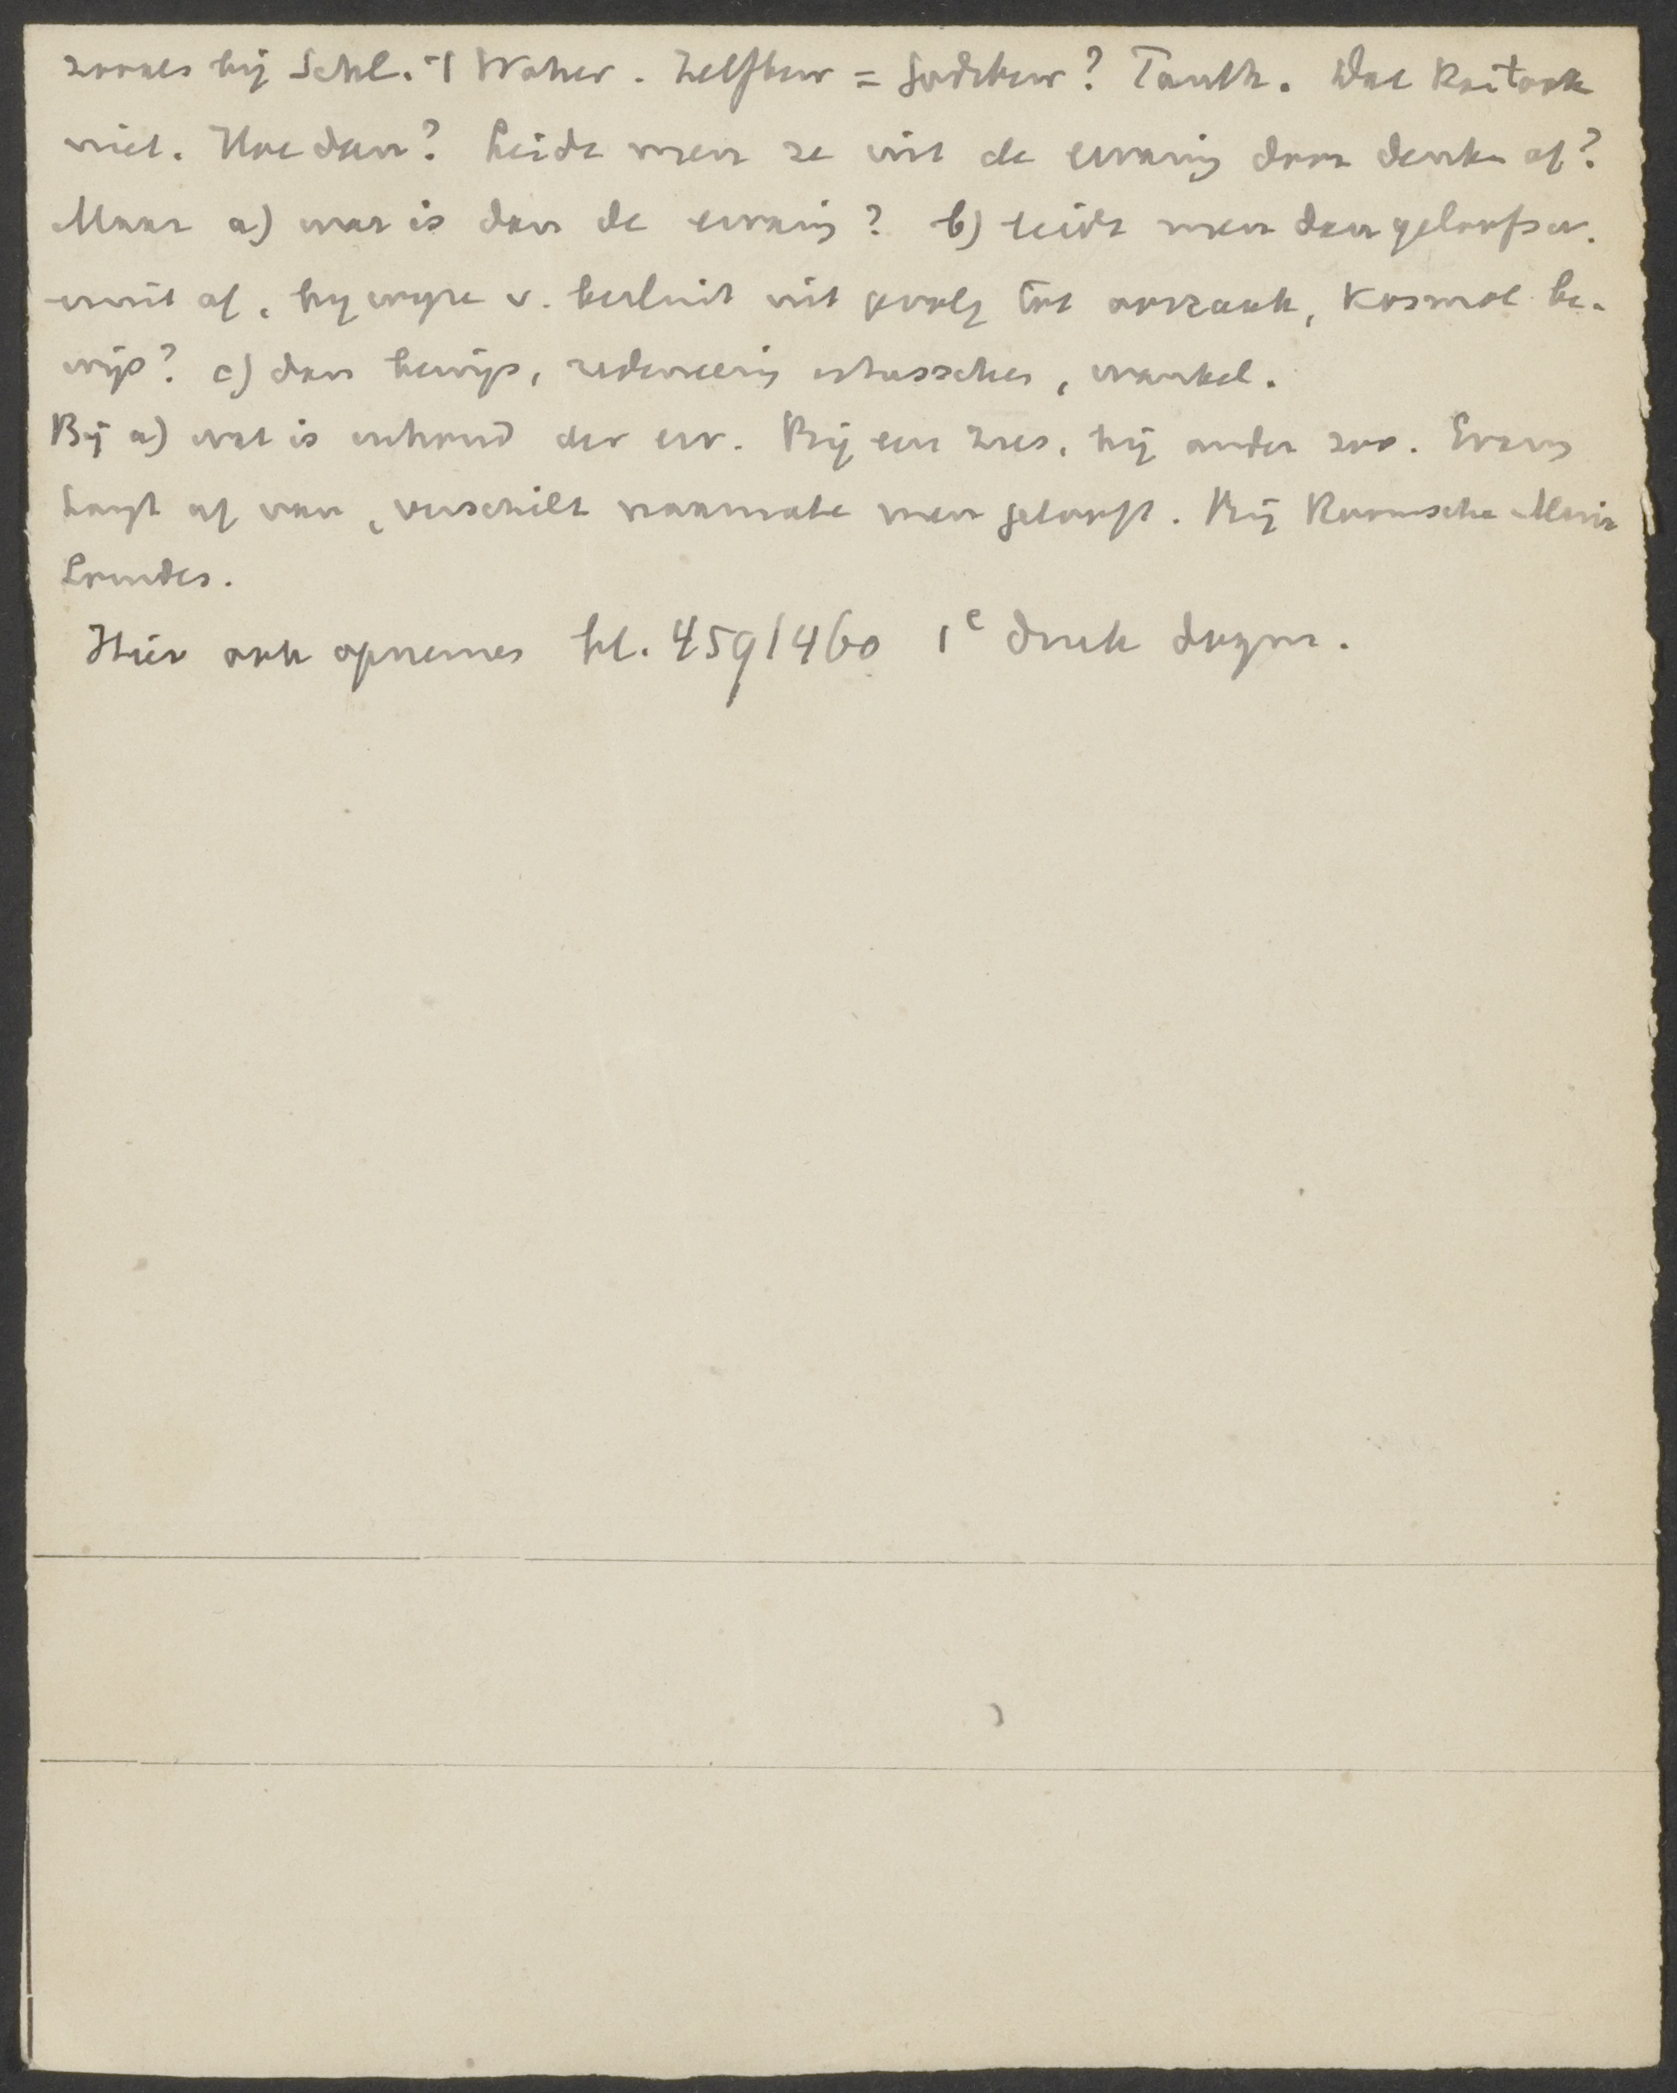 zooals bij Schl. 't Woher. Zelfbew = Godsbew? Panth. Dat kan ook
niet. Hoe dan? Leidt men ze uit de ervaring door denken af?
Maar a) wat is dan de ervaring? b) leidt men dan geloofsw.
eruit af, bij wyze v. besluit uit gevolg tot oorzaak, kosmol be-
wijs? c) dan bewijs, redeneering ertusschen, wankel.
Bij a) wat is inhoud der erv. Bij een zus, bij ander zoo. Ervaring
hangt af van, verschilt naarmate men gelooft. Bij Roomsche Maria
Lourdes.
Hier ook opnemen bl. 459/460 1e druk dogm.